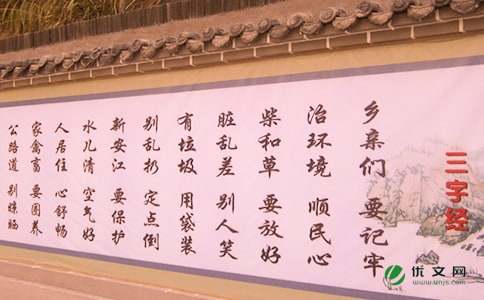 三字经
乡亲们 要记牢
治环境 顺民心
柴和草 要放好
脏乱差 别人笑
有垃圾 用袋装
别乱扔 定点倒
新安江 要保护
水儿清 空气好
人居住 心舒畅
家禽畜 要圈养
公路道 别晒
优文网
www.unjs.com